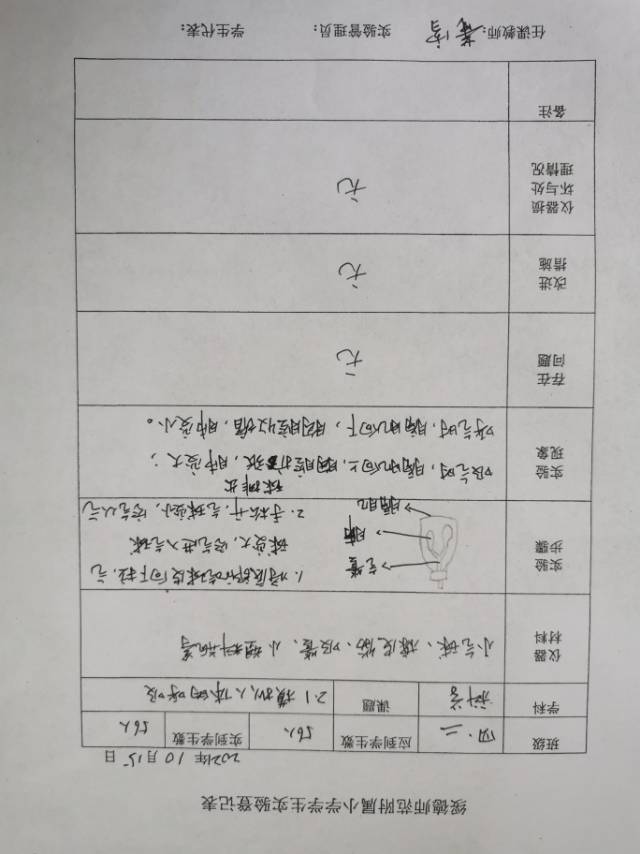 绥德师范附属小学学生实验登记表
2021年10月15日
班级 四·二 应到学生数 56人 实到学生数 56人
学科 科学 课题 2.1 模拟人体的呼吸
仪器材料 小气球、橡皮筋、吸管、小塑料瓶等
实验步骤
气管
肺
膈肌
1.将底部的气球皮向下拉,气
球变大,空气进入气球
2.手松开,气球变小,空气从气
球排出
实验现象
吸气时,膈肌向上,胸腔扩张,肺变大;
呼气时,膈肌向下,胸腔收缩,肺变小。
存在问题 无
改进措施 无
仪器损坏与处理情况 无
备注
任课教师: 实验管理员: 学生代表: